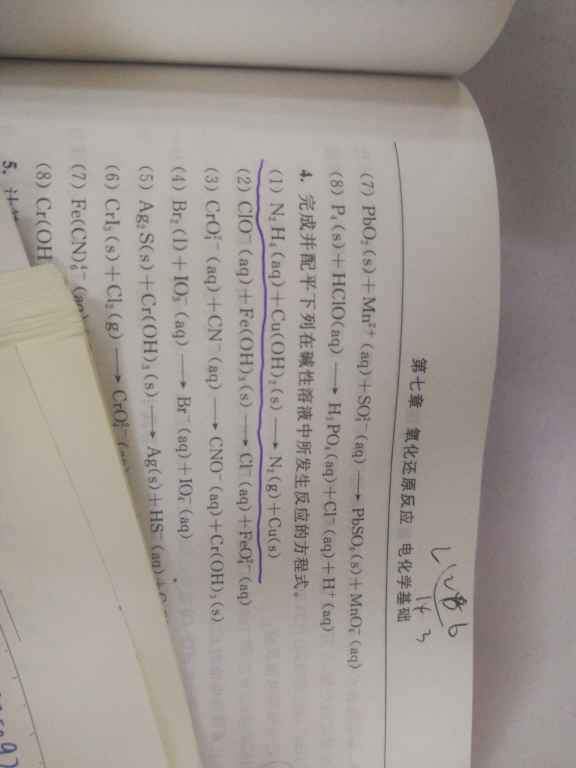 第七章 氧化还原反应 电化学基础
(7) PbO₂(s)+Mn²⁺(aq)+SO₄²⁻(aq) ⟶ PbSO₄(s)+MnO₄⁻(aq)
(8) P₄(s)+HClO(aq) ⟶ H₃PO₄(aq)+Cl⁻(aq)+H⁺(aq)
4. 完成并配平下列在碱性溶液中所发生反应的方程式。
(1) N₂H₄(aq)+Cu(OH)₂(s) ⟶ N₂(g)+Cu(s)
(2) ClO⁻(aq)+Fe(OH)₃(s) ⟶ Cl⁻(aq)+FeO₄²⁻(aq)
(3) CrO₄²⁻(aq)+CN⁻(aq) ⟶ CNO⁻(aq)+Cr(OH)₃(s)
(4) Br₂(l)+IO₃⁻(aq) ⟶ Br⁻(aq)+IO₄⁻(aq)
(5) Ag₂S(s)+Cr(OH)₃(s) ⟶ Ag(s)+HS⁻(aq)+
(6) CrI₃(s)+Cl₂(g) ⟶ CrO₄²⁻
(7) Fe(CN)₆⁴⁻
(8) Cr(OH)
5.